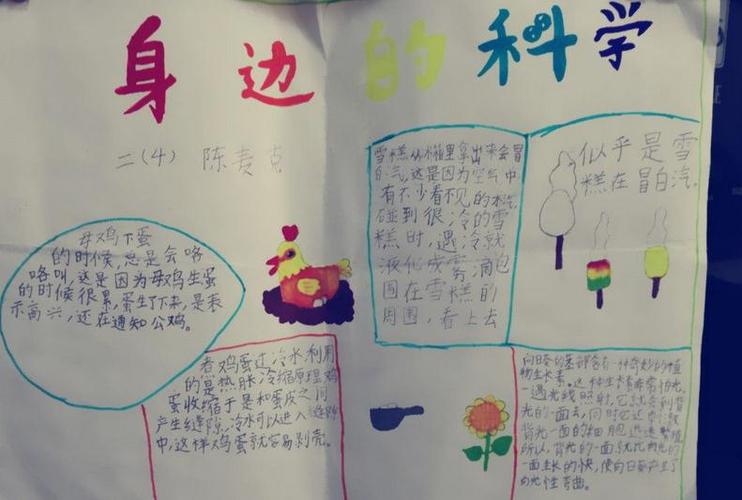 身边的科学
二(4) 陈责克
母鸡下蛋
的时候,总是会咯
咯叫,这是因为母鸡生蛋
的时候很累,蛋生了下来,是表
示高兴,还在通知公鸡。
雪糕从冰箱里拿出来会冒
白气,这是因为空气中
有不少看不见的水汽
碰到很冷的雪
糕时,遇冷就
液化成雾滴包
围在雪糕的
周围,看上去
似乎是雪
糕在冒白汽。
煮鸡蛋过冷水,利用
的是热胀冷缩原理,鸡
蛋收缩于是和蛋皮之间
产生缝隙,冷水可以进入缝隙
中,这样鸡蛋就容易剥壳。
向日葵的基部含有一种奇妙的植
物生长素。这种生长素非常怕光
一遇光线照射,它就会到背
光的一面去,同时它还
背光一面的细胞迅速繁殖
所以,背光的一面就比向光的
一面生长的快,使向日葵产生了
向光性弯曲。